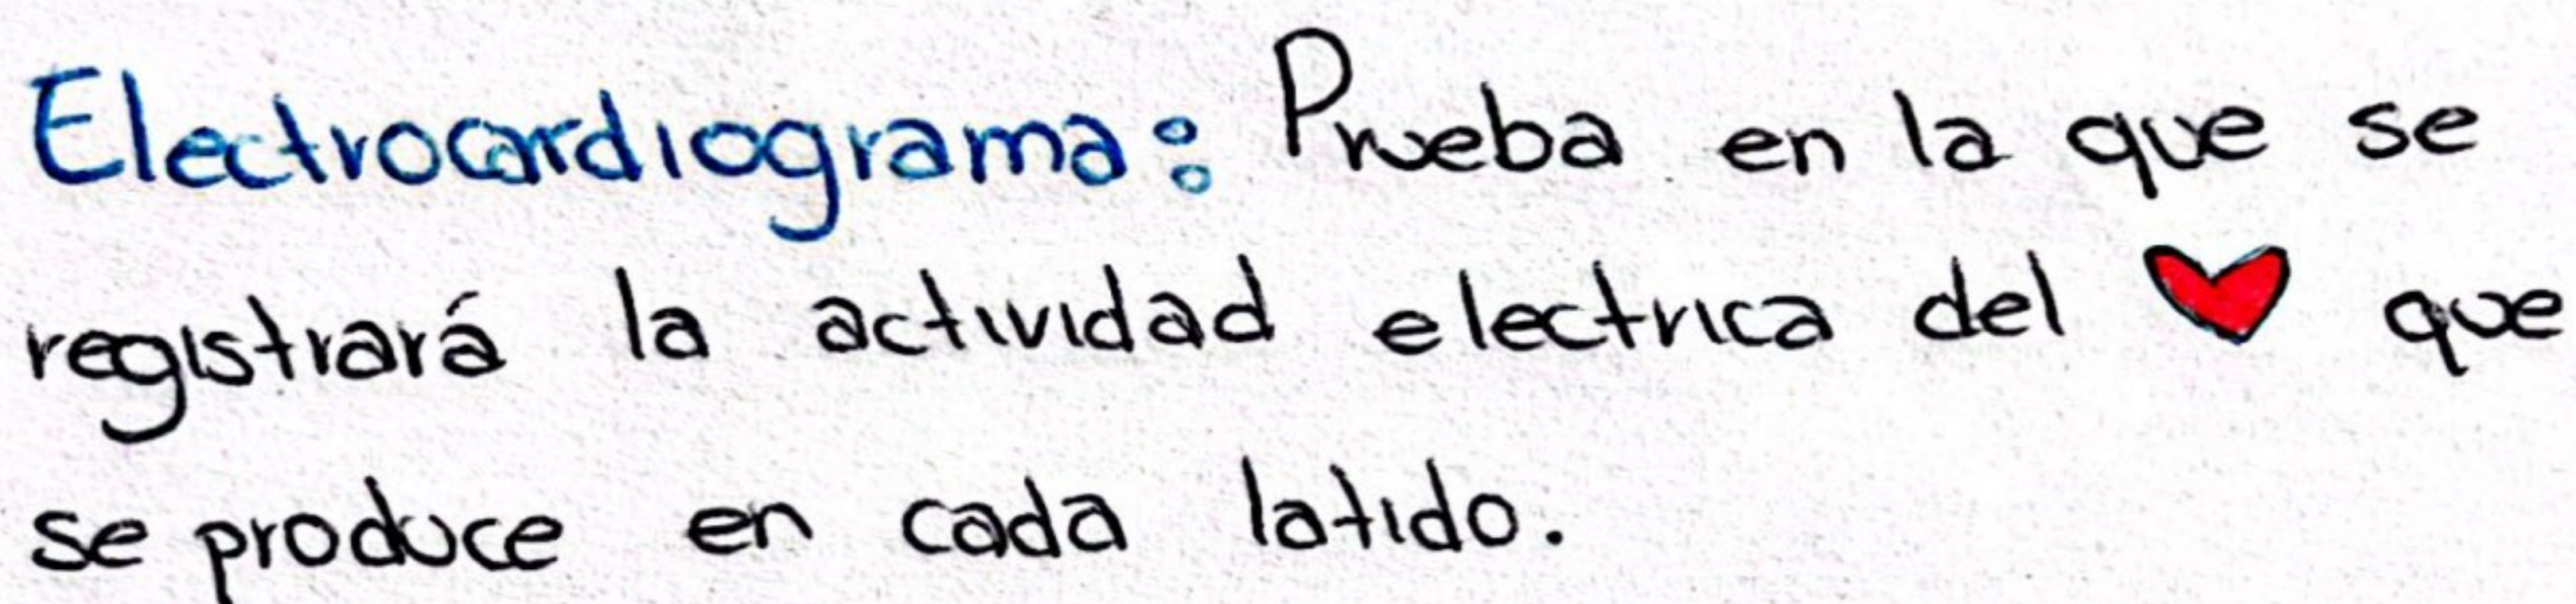 Electrocardiograma: Prueba en la que se
registrará la actividad electrica del ❤ que
se produce en cada latido.